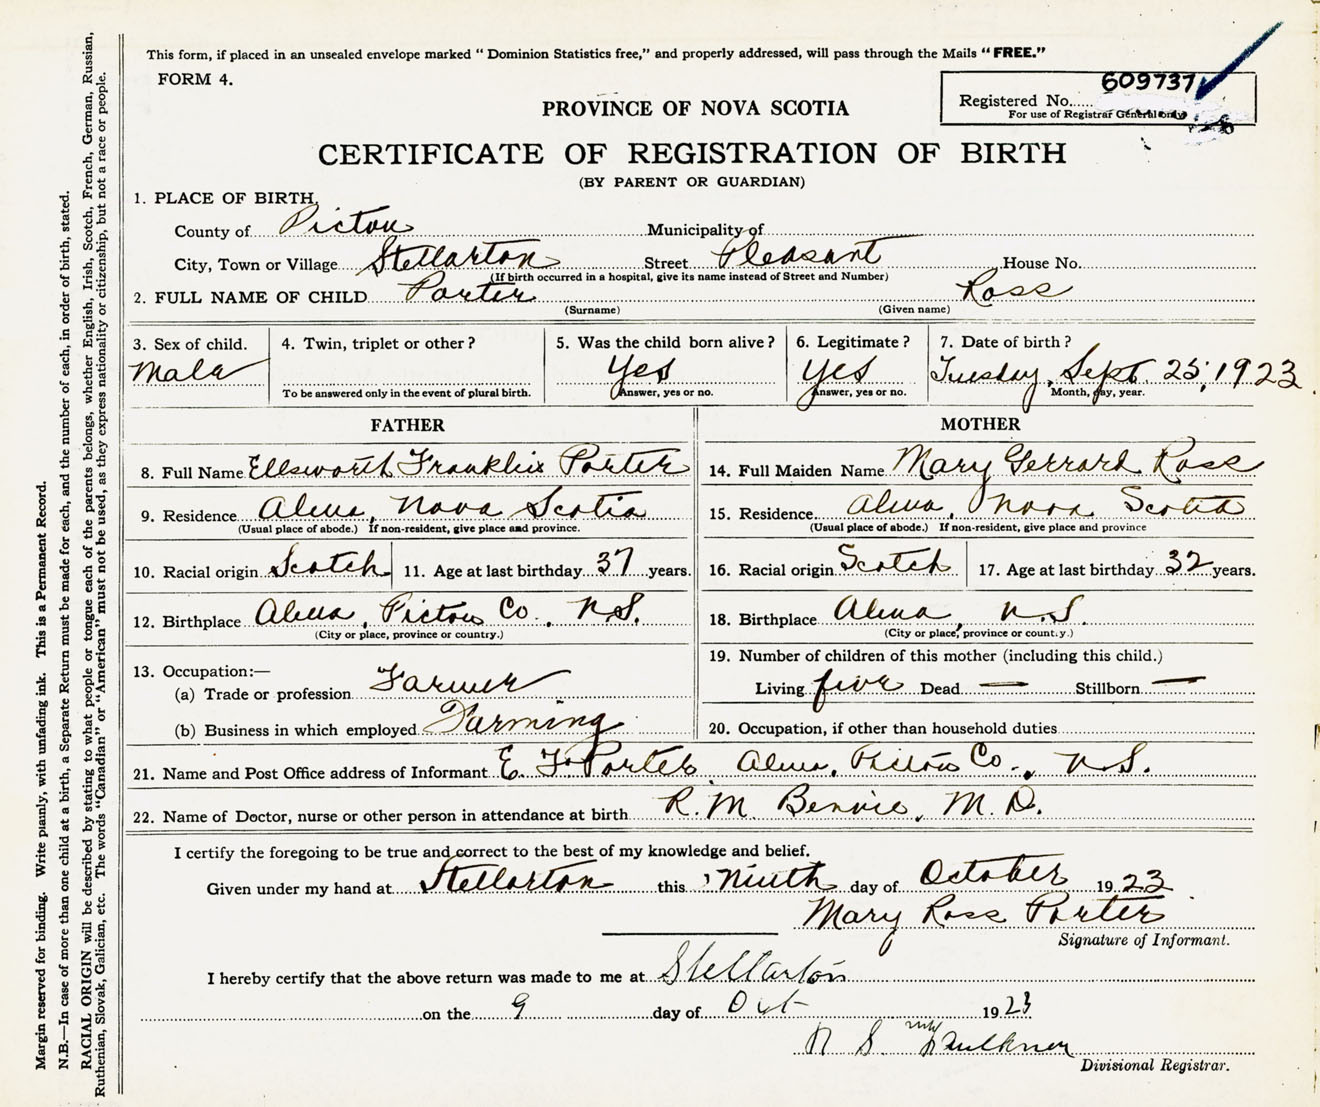 This form, if placed in an unsealed envelope marked “ Dominion Statistics free,” and properly addressed, will pass through the Mails “ FREE.”
FORM 4.
609737
Registered No.
For use of Registrar General only
PROVINCE OF NOVA SCOTIA
CERTIFICATE OF REGISTRATION OF BIRTH
(BY PARENT OR GUARDIAN)
1. PLACE OF BIRTH,
County of Pictou Municipality of
City, Town or Village Stellarton Street Pleasant House No.
(If birth occurred in a hospital, give its name instead of Street and Number)
2. FULL NAME OF CHILD Porter Ross
(Surname) (Given name)
3. Sex of child. 4. Twin, triplet or other? 5. Was the child born alive? 6. Legitimate? 7. Date of birth?
Male Yes Yes Tuesday, Sept 25, 1923
To be answered only in the event of plural birth. Answer, yes or no. Answer, yes or no. Month, day, year.
FATHER MOTHER
8. Full Name Ellsworth Franklin Porter 14. Full Maiden Name Mary Gerrard Ross
9. Residence Alma, Nova Scotia 15. Residence Alma, Nova Scotia
(Usual place of abode.) If non-resident, give place and province. (Usual place of abode.) If non-resident, give place and province
10. Racial origin Scotch 11. Age at last birthday 37 years. 16. Racial origin Scotch 17. Age at last birthday 32 years.
12. Birthplace Alma, Pictou Co., N.S. 18. Birthplace Alma, N.S.
(City or place, province or country.) (City or place, province or country.)
13. Occupation:— 19. Number of children of this mother (including this child.)
(a) Trade or profession Farmer Living five Dead — Stillborn —
(b) Business in which employed Farming 20. Occupation, if other than household duties
21. Name and Post Office address of Informant E. F. Porter, Alma, Pictou Co., N.S.
22. Name of Doctor, nurse or other person in attendance at birth R. M. Benvie, M.D.
I certify the foregoing to be true and correct to the best of my knowledge and belief.
Given under my hand at Stellarton this Ninth day of October 1923
Mary Ross Porter
Signature of Informant.
I hereby certify that the above return was made to me at Stellarton
on the 9 day of Oct 1923
Faulkner
Divisional Registrar.
Margin reserved for binding. Write plainly, with unfading ink. This is a Permanent Record.
N.B.—In case of more than one child at a birth, a Separate Return must be made for each, and the number of each, in order of birth, stated.
RACIAL ORIGIN will be described by stating to what people or tongue each of the parents belongs, whether English, Irish, Scotch, French, German, Russian,
Ruthenian, Slovak, Galician, etc. The words “Canadian” or “American” must not be used, as they express nationality or citizenship, but not a race or people.